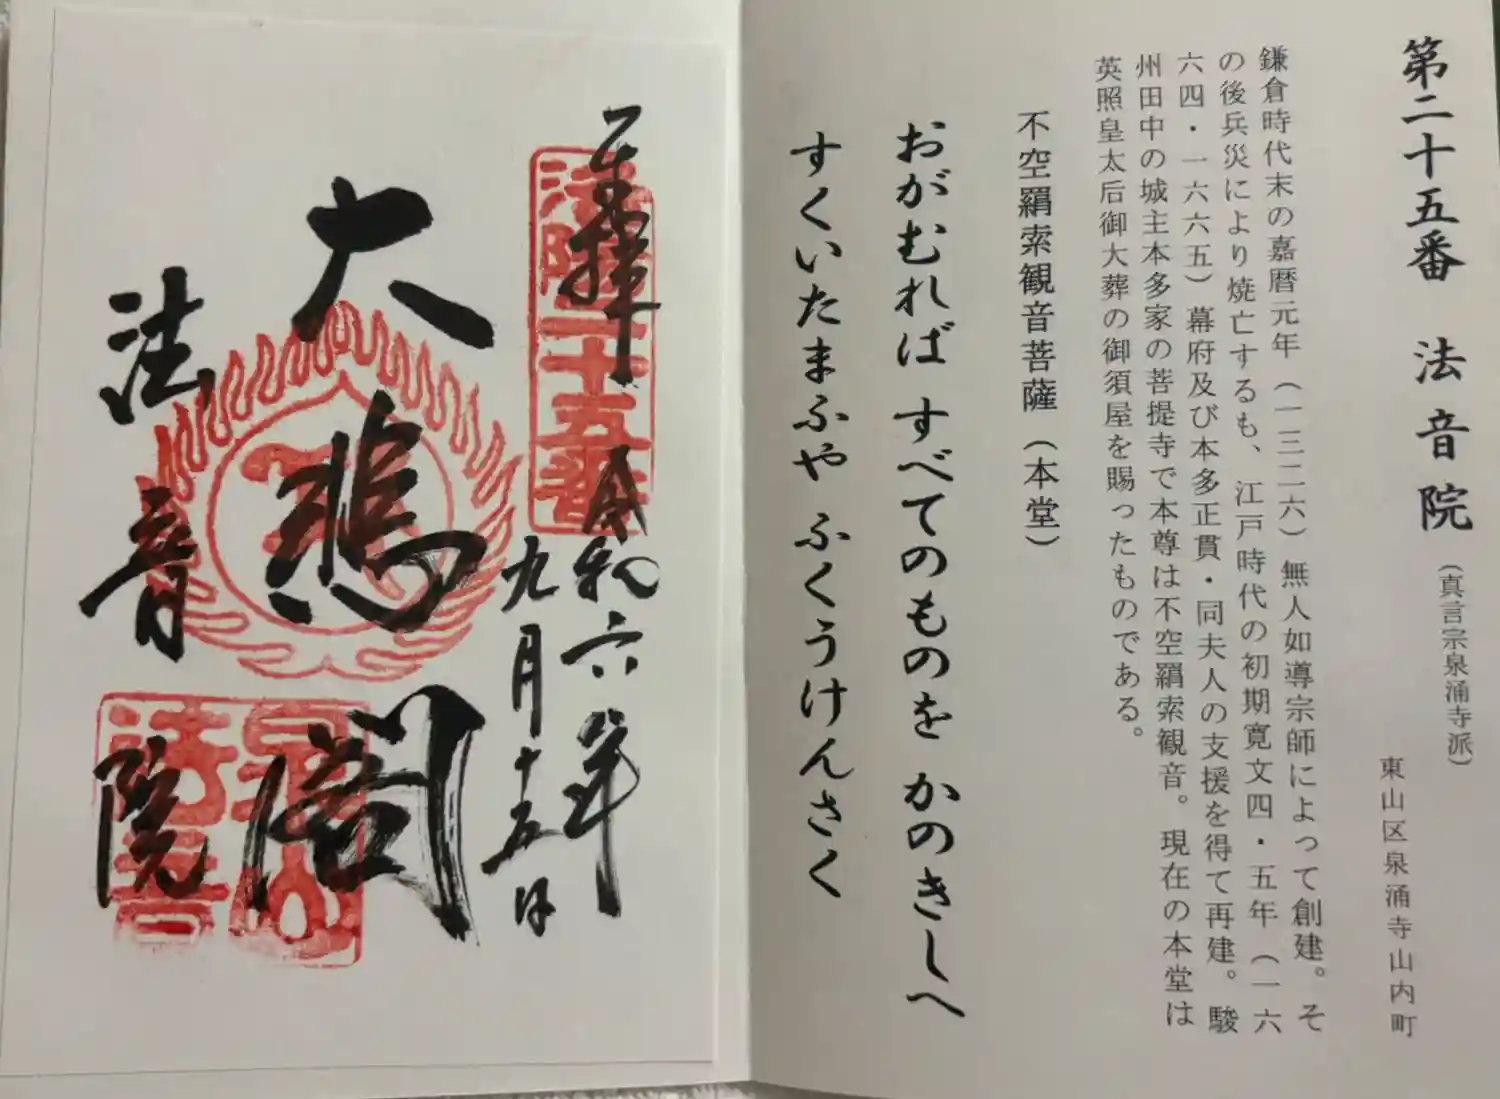 第二十五番 法音院(真言宗泉涌寺派)
東山区泉涌寺山内町
鎌倉時代末の嘉暦元年(一三二六)無人如導宗師によって創建。そ
の後兵災により焼亡するも、江戸時代の初期寛文四・五年(一六
六四・一六六五)幕府及び本多正貫・同夫人の支援を得て再建。駿
州田中の城主本多家の菩提寺で本尊は不空羂索観音。現在の本堂は
英照皇太后御大葬の御須屋を賜ったものである。
不空羂索観音菩薩(本堂)
おがむれば すべてのものを かのきしへ
すくいたまふや ふくうけんさく
奉拝 令和六年
九月十五日
大悲閣
法音院
洛陽二十五番